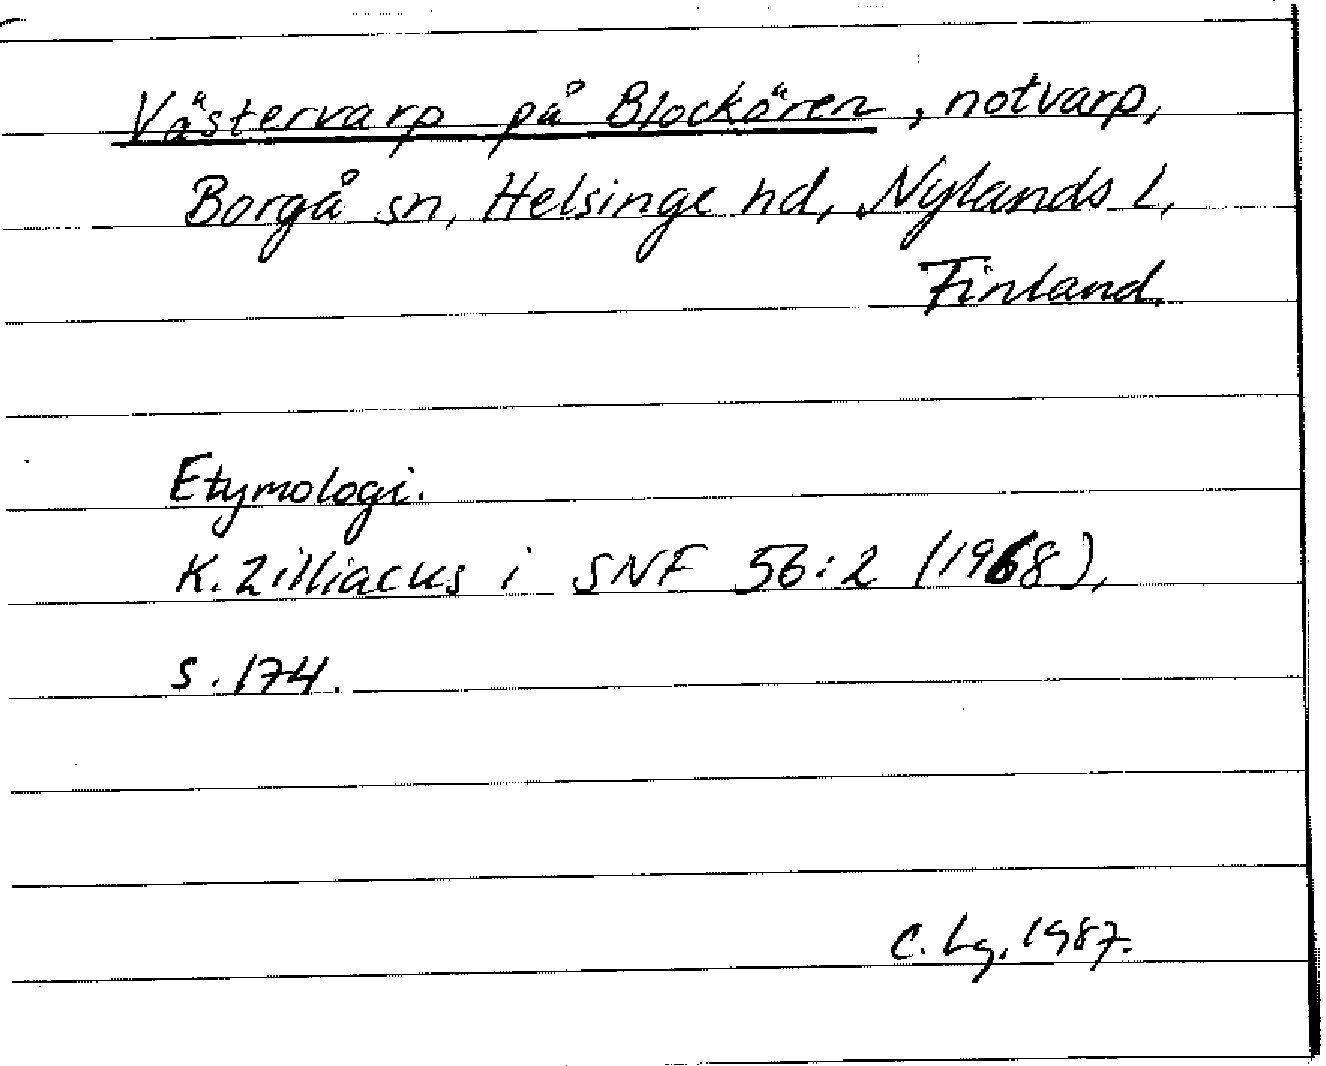 Västervarp på Blockären, notvarp,
Borgå sn, Helsinge hd, Nylands l,
Finland.
Etymologi.
K. Zilliacus i SNF 56:2 (1968),
s. 174.
C. Lg. 1987.